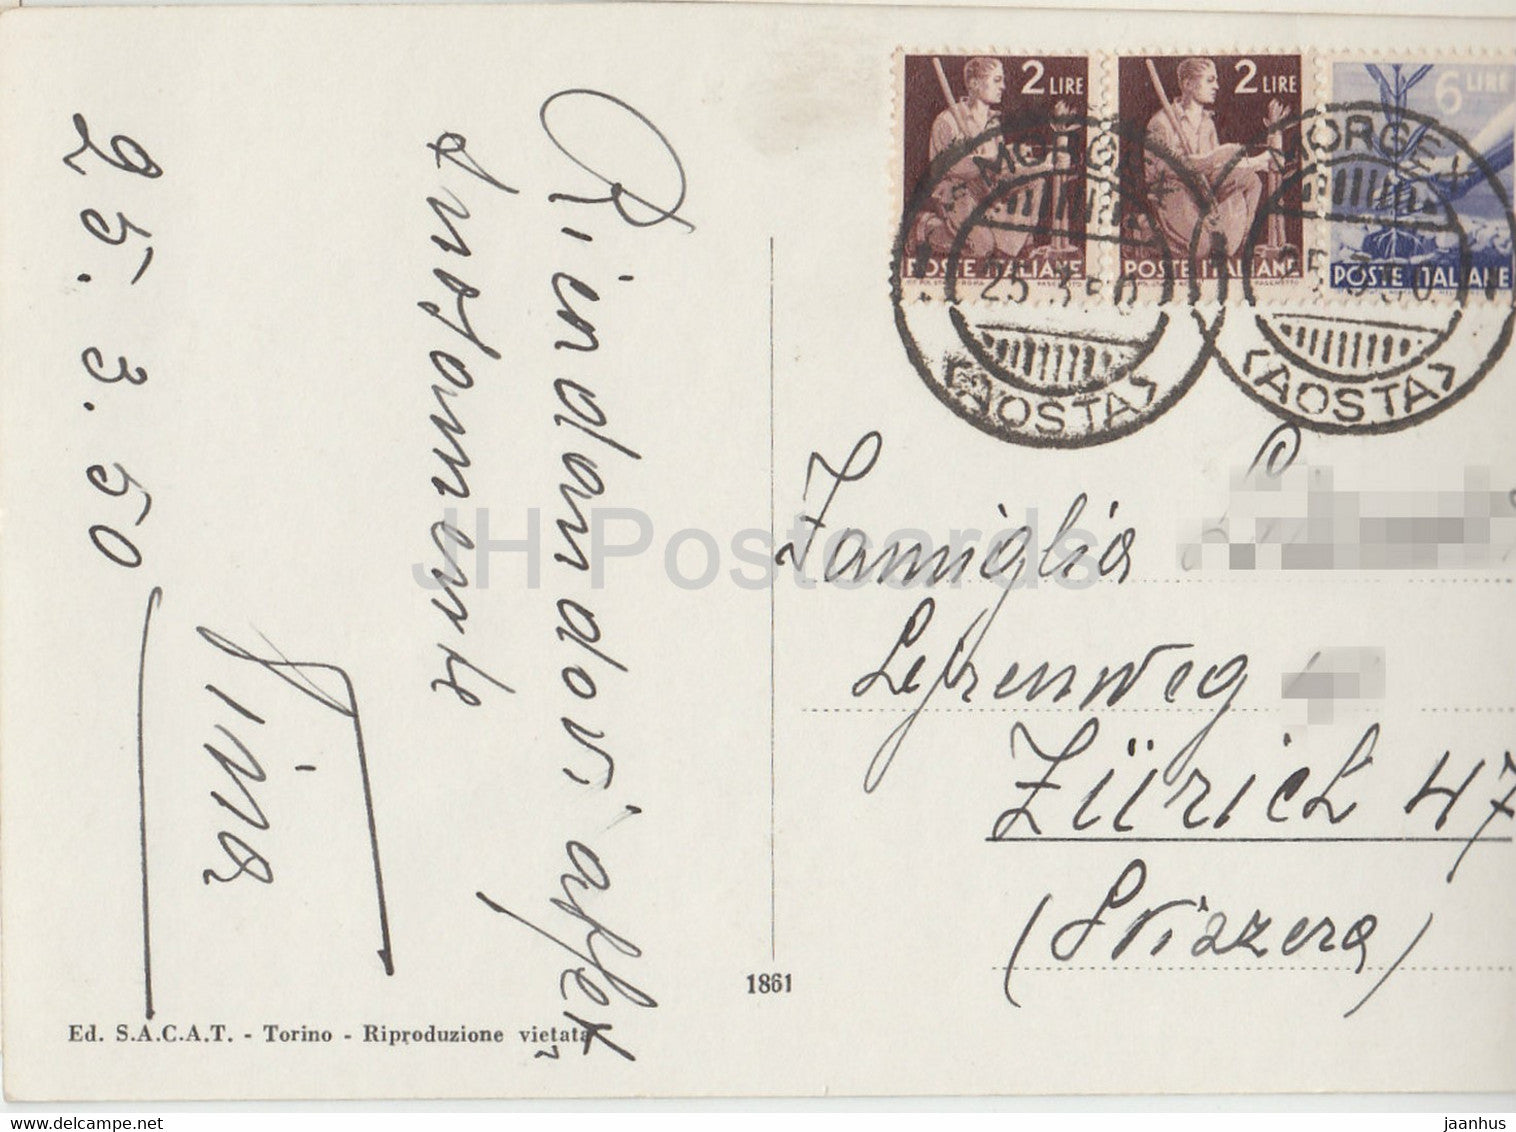 2 LIRE
2 LIRE
6 LIRE
POSTE ITALIANE
POSTE ITALIANE
POSTE ITALIANE
MORGEX
25.3.50
(AOSTA)
MORGEX
25.3.50
(AOSTA)
Riandandovi affett
25. 3. 50
Famiglia
Zürich 47
(Svizzera)
1861
Ed. S.A.C.A.T. - Torino - Riproduzione vietata
JH Postcards
www.delcampe.net
jaanhus